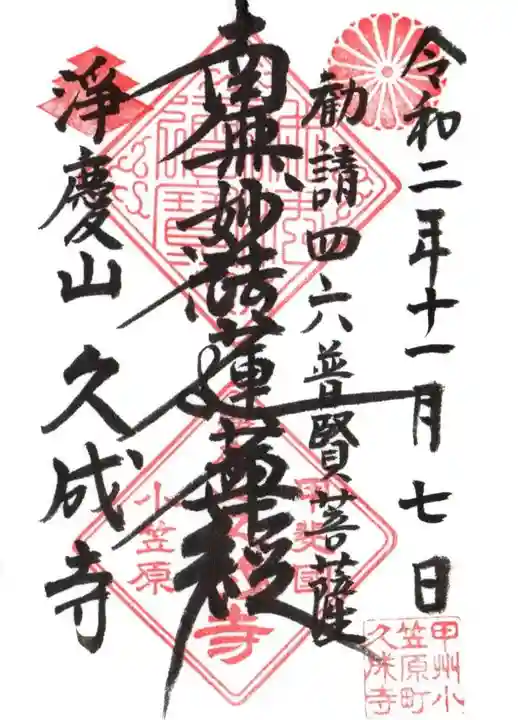 令和二年十一月七日
勧請四六普賢菩薩
南無妙法蓮華経
淨慶山 久成寺
甲斐国
小笠原
甲州小
笠原町
久成寺